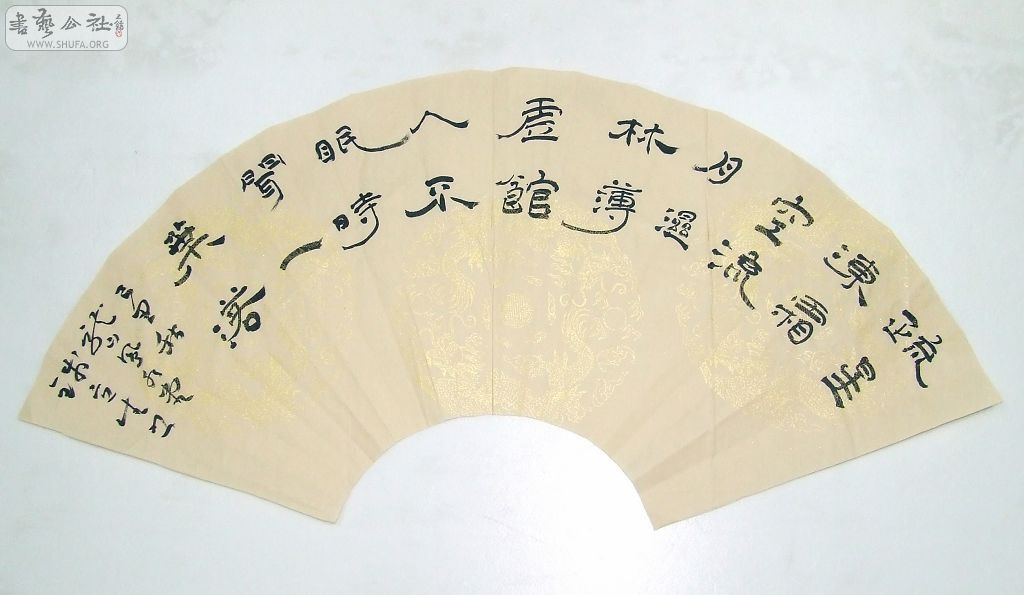 書藝公社
WWW.SHUFA.ORG
疏星
凍霜
空流
月濕
林薄
虛館
人不
眠時
聞一
葉落